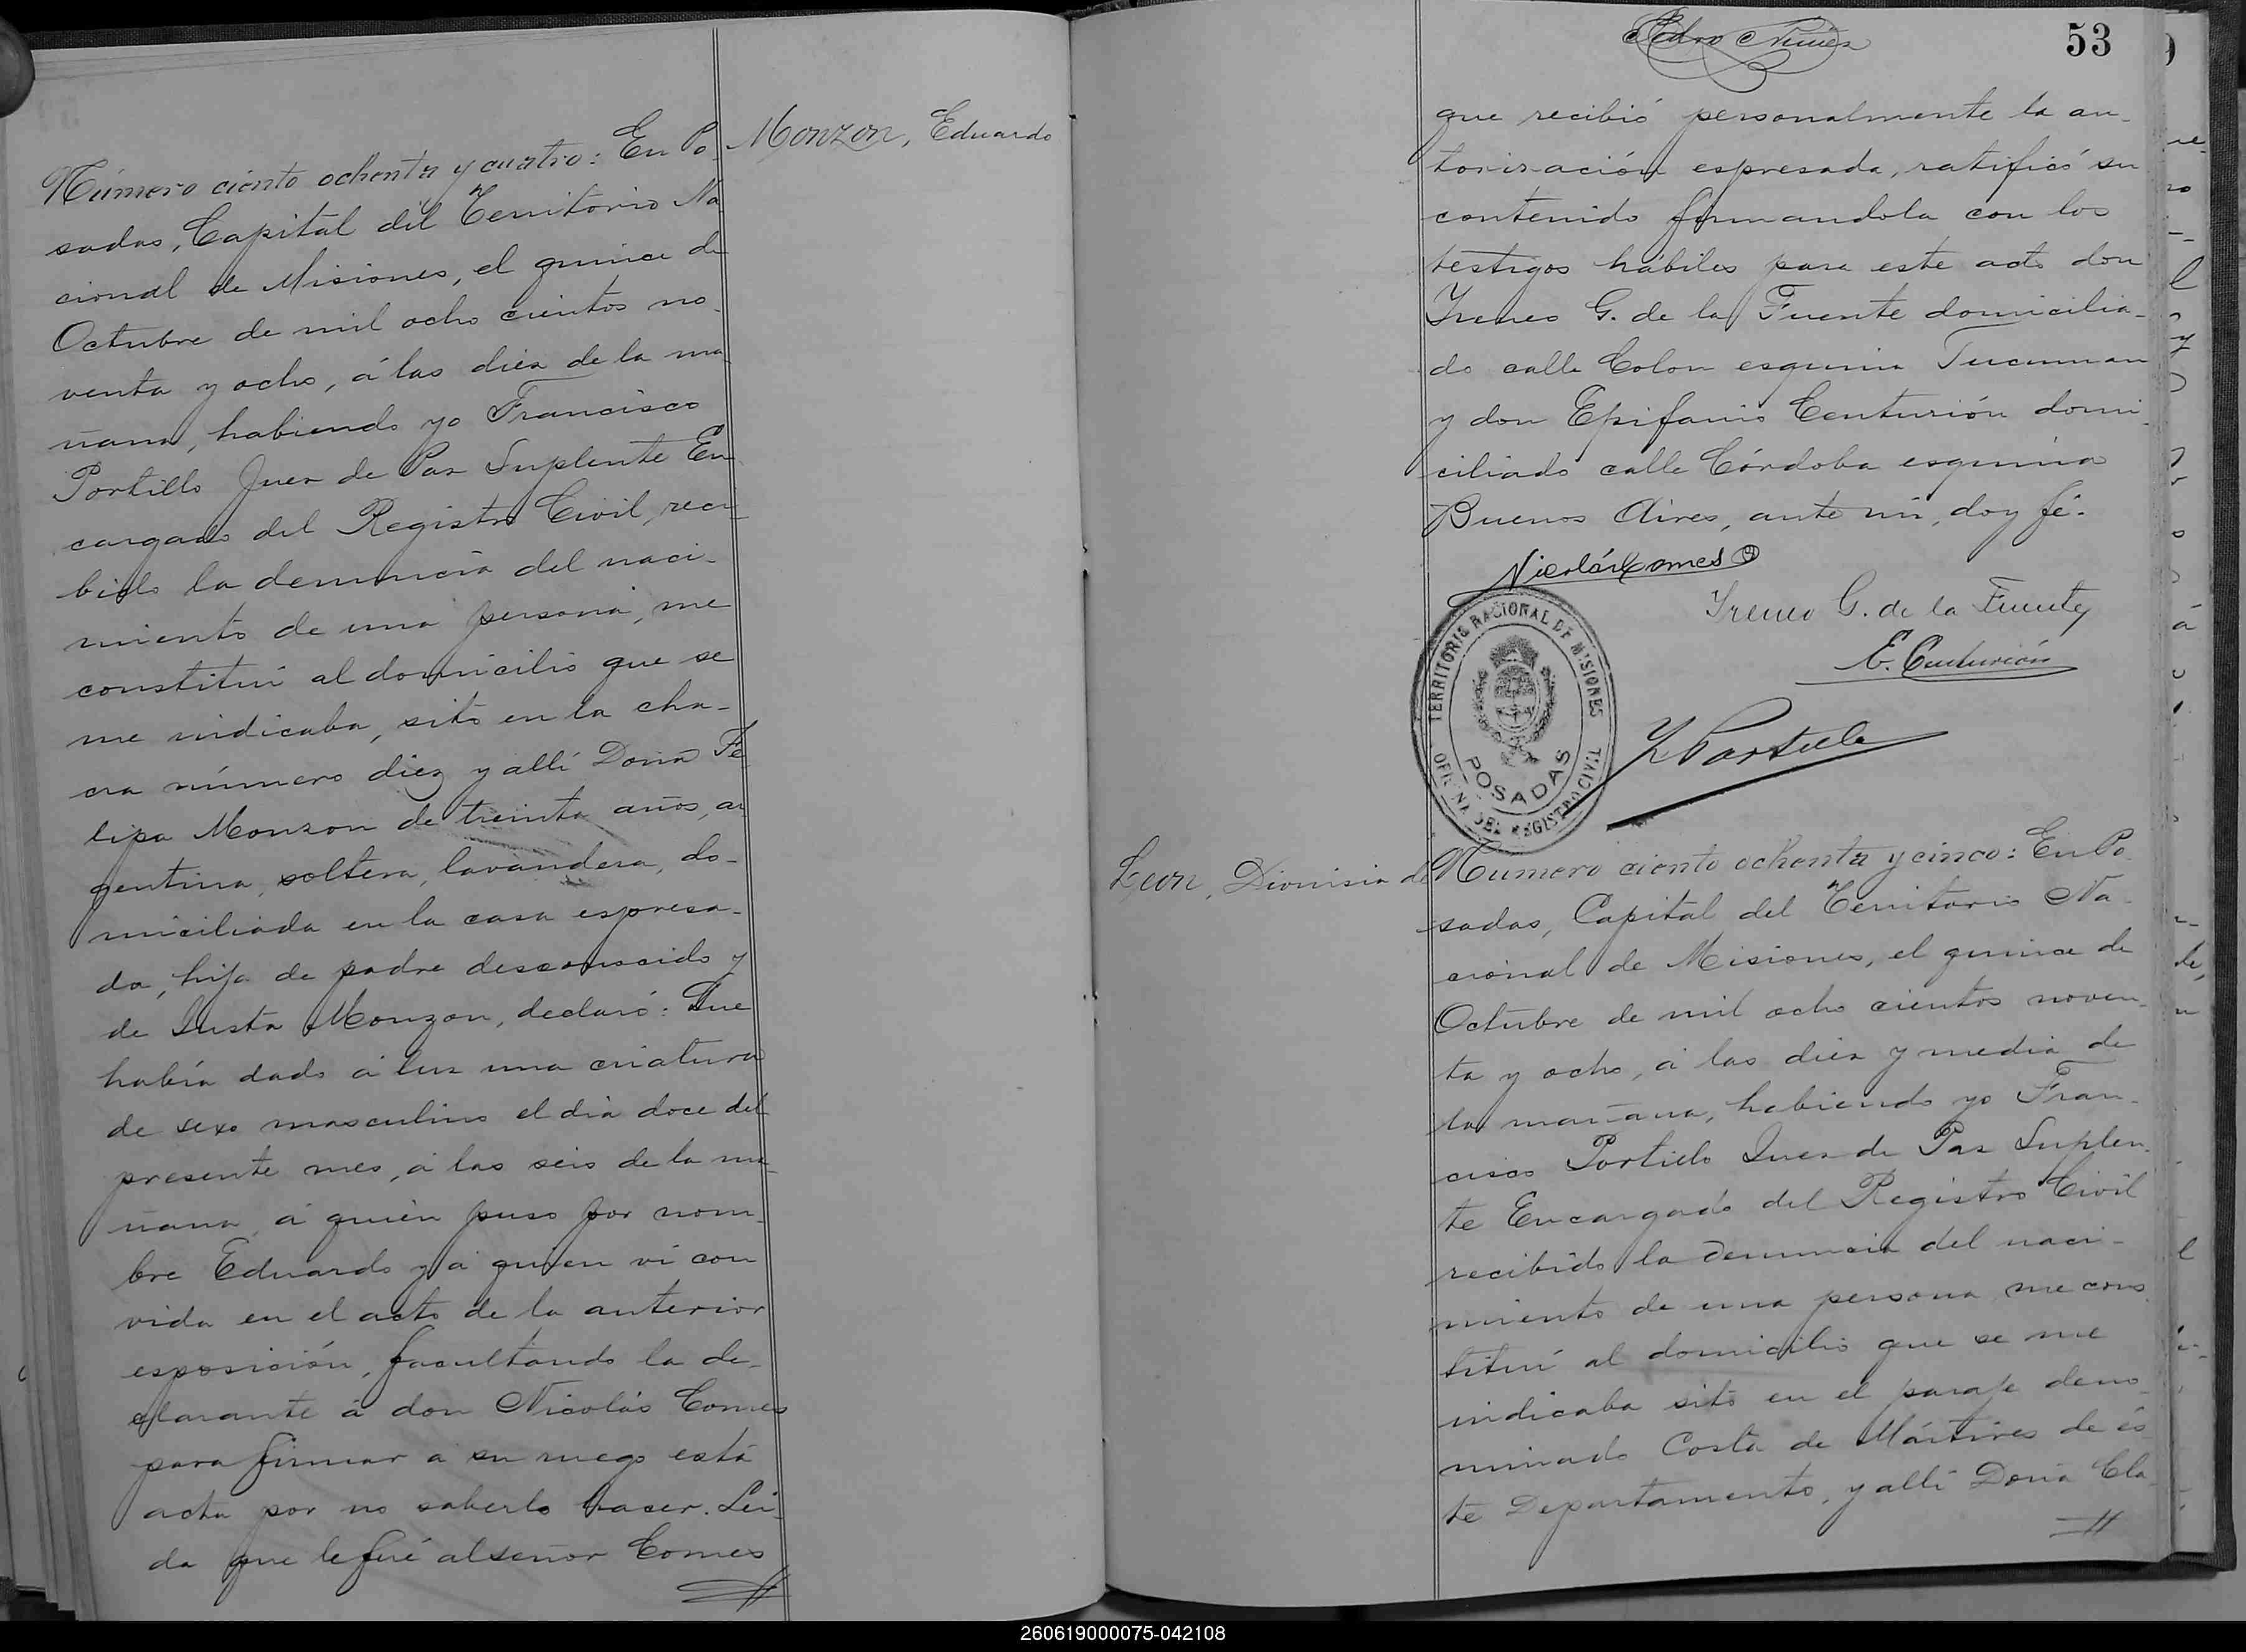 Monzon, Eduardo
Número ciento ochenta y cuatro: En Po-
sadas, Capital del Territorio Na
cional de Misiones, el quince de
Octubre de mil ocho cientos no-
venta y ocho, á las diez de la ma
ñana, habiendo yo Francisco
Portillo Juez de Paz Suplente En
cargado del Registro Civil, reci-
bido la denuncia del naci-
miento de una persona, me
constituí al domicilio que se
me indicaba, sito en la cha-
cra número diez y allí Doña Fe
lipa Monzon de treinta años, ar
gentina, soltera, lavandera, do-
miciliada en la casa espresa-
da, hija de padre desconocido y
de Justa Monzon, declaró: Que
había dado á luz una criatura
de sexo masculino el día doce del
presente mes, á las seis de la ma-
ñana, á quién puso por nom-
bre Eduardo y á quien vi con
vida en el acto de la anterior
esposición, facultando la de-
clarante á don Nicolás Comes
para firmar a su ruego está
acta por no saberlo hacer. Lei-
da que le fué al señor Comes
Pedro Nuñez
53
que recibió personalmente la au-
torización espresada, ratificó su
contenido firmandola con los
testigos hábiles para este acto don
Yreneo G. de la Fuente domicilia-
do calle Colon esquina Tucuman
y don Epifanio Centurión domi-
ciliado calle Córdoba esquina
Buenos Aires, ante mí, doy fé.
Nicolás Comes
Yreneo G. de la Fuente
E. Centurión
TERRITORIO NACIONAL DE MISIONES
POSADAS
OFICINA DEL REGISTRO CIVIL
F Portillo
Leon, Dionisia de
Número ciento ochenta y cinco: En Po-
sadas, Capital del Territorio Na-
cional de Misiones, el quince de
Octubre de mil ocho cientos noven-
ta y ocho, á las diez y media de
la mañana, habiendo yo Fran-
cisco Portillo Juez de Paz Suplen-
te Encargado del Registro Civil
recibido la denuncia del naci-
miento de una persona me cons
tituí al domicilio que se me
indicaba sito en el paraje deno-
minado Costa de Mártires de és
te Departamento, y allí Doña Cla-
260619000075-042108